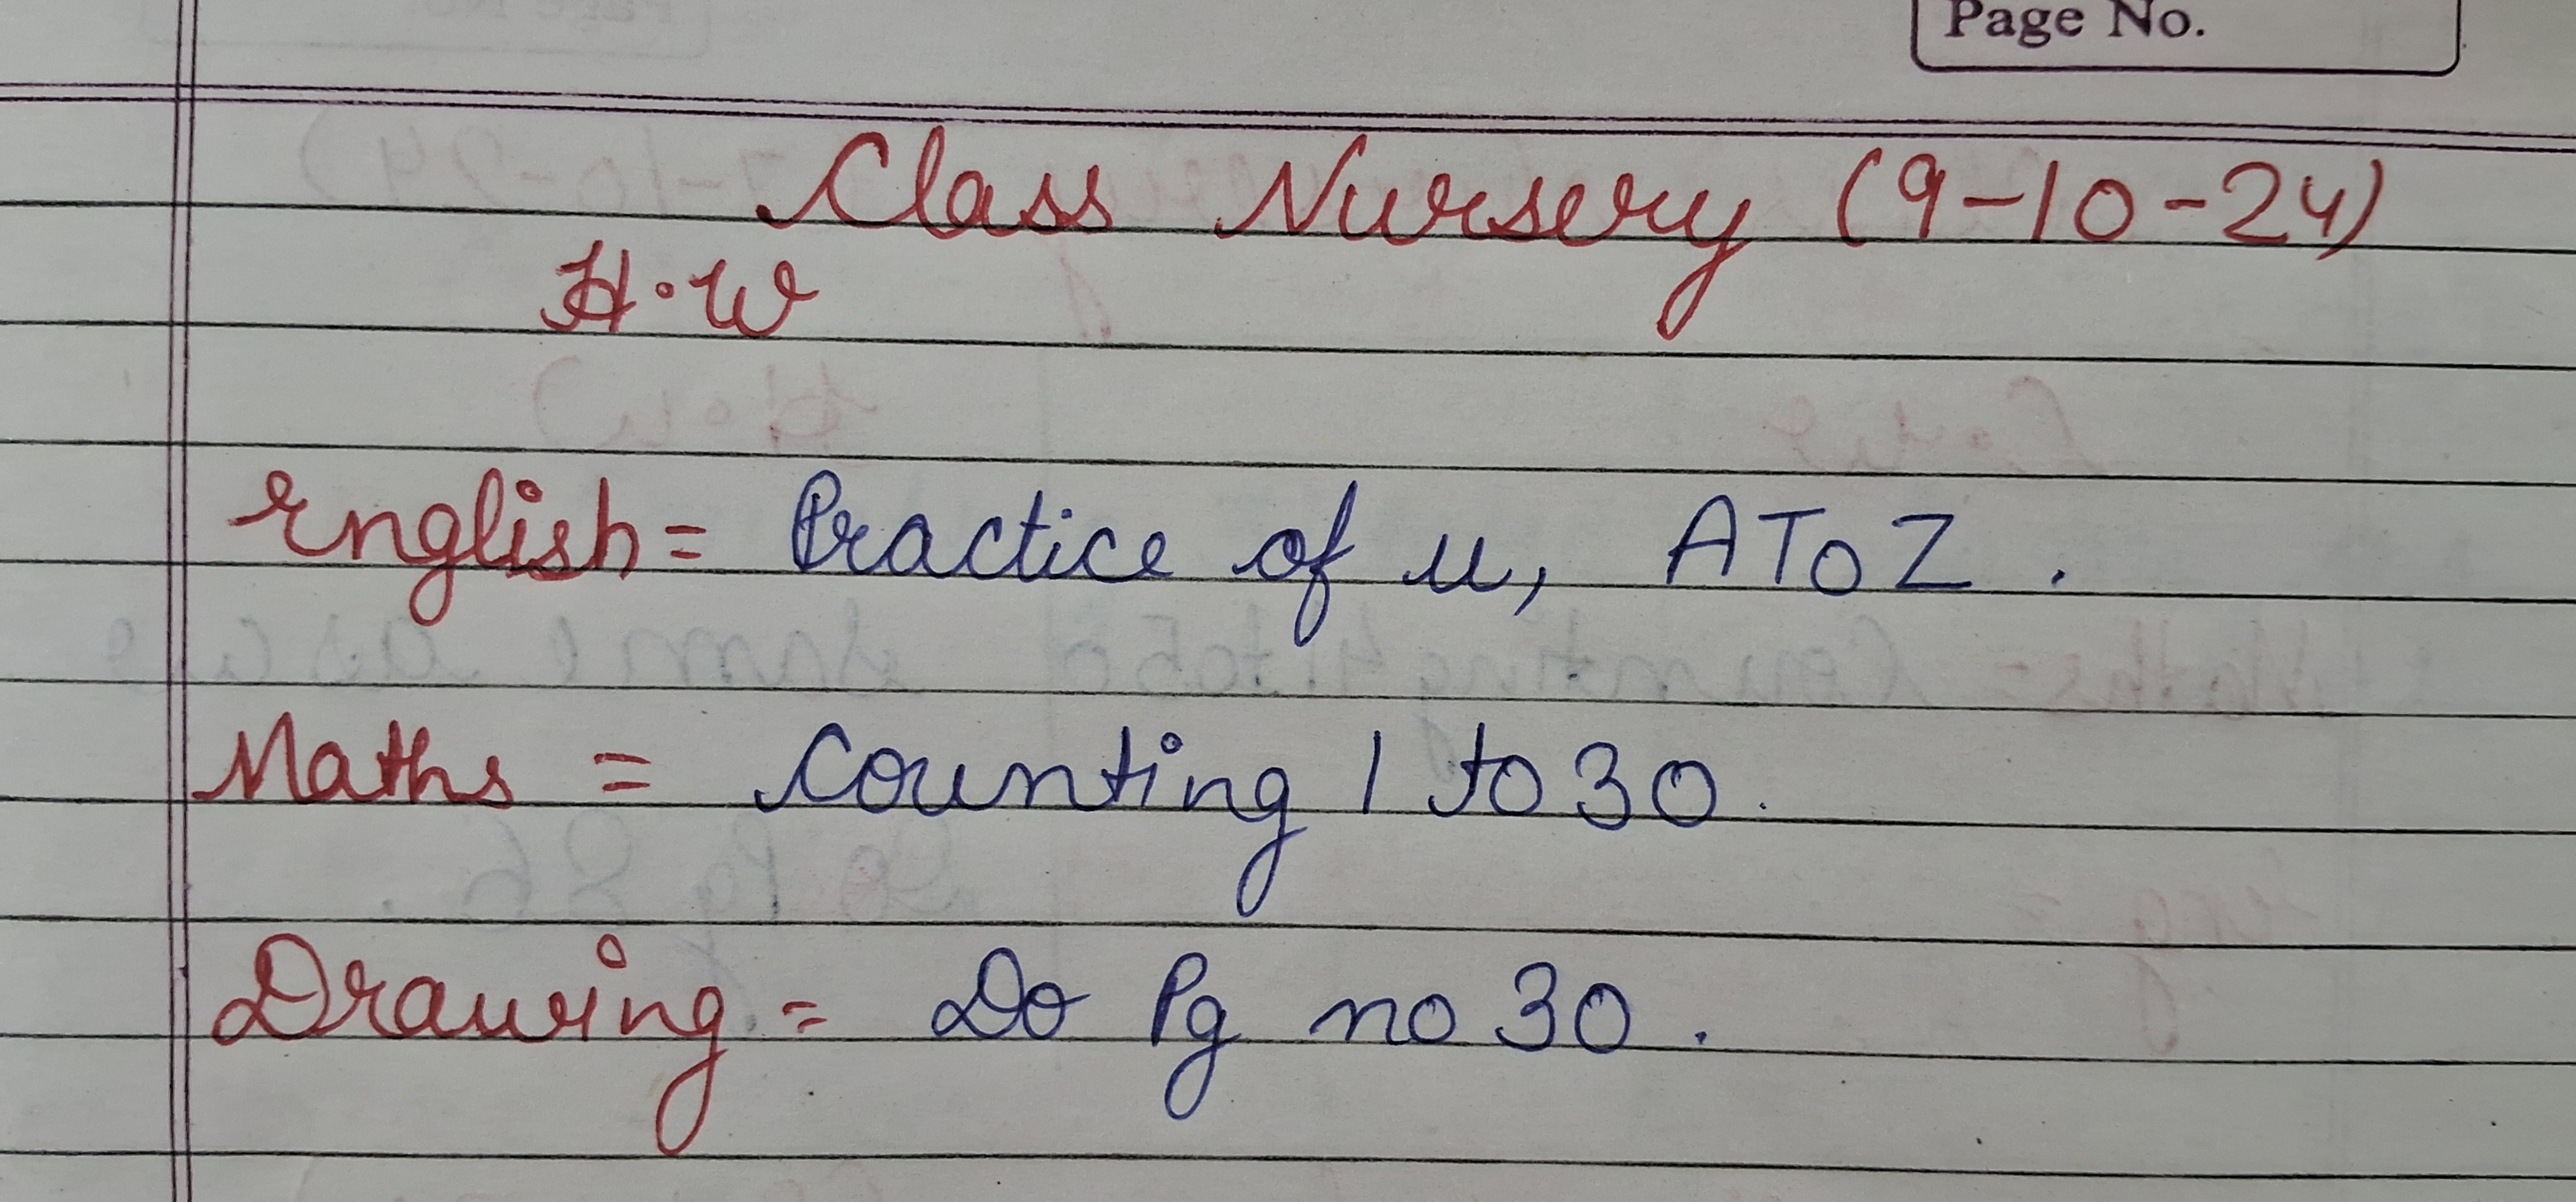 Page No.
Class Nursery (9-10-24)
H.W
English = Practice of u, A To Z.
Maths = Counting 1 to 30.
Drawing = Do Pg no 30.